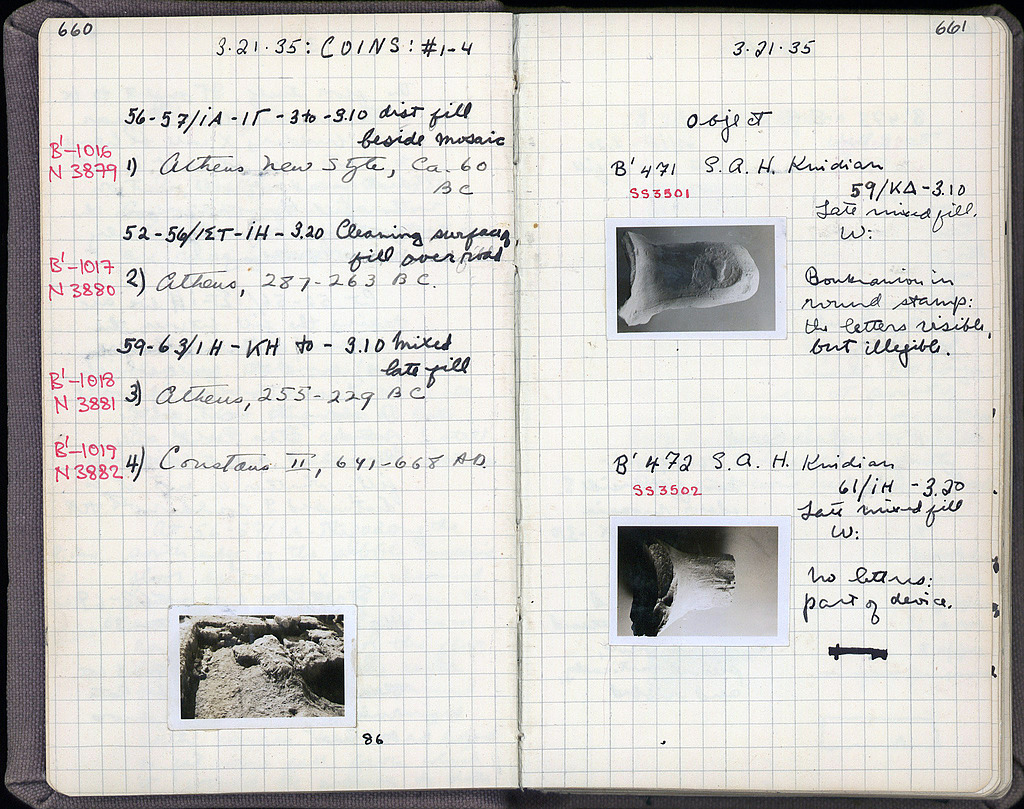 660
3·21·35: COINS: #1-4
56-57/ΙΑ-ΙΓ -3 to -3.10 dist fill
beside mosaic
B'-1016
N 3879
1) Athens New Style, Ca. 60
BC
52-56/ΙΣΤ-ΙΗ - 3.20 Cleaning surface,
fill over road
B'-1017
N 3880
2) Athens, 287-263 BC.
59-63/ΙΗ - ΚΗ to - 3.10 Mixed
late fill
B'-1018
N 3881
3) Athens, 255-229 BC
B'-1019
N 3882
4) Constans II, 641-668 AD.
86
661
3·21·35
Object
B' 471 S. A. H. Knidian
SS3501
59/ΚΔ -3.10
Late mixed fill.
W:
Boukranion in
round stamp:
the letters visible,
but illegible.
B' 472 S. A. H. Knidian
SS3502
61/ΙΗ -3.20
Late mixed fill
W:
No letters:
part of device.